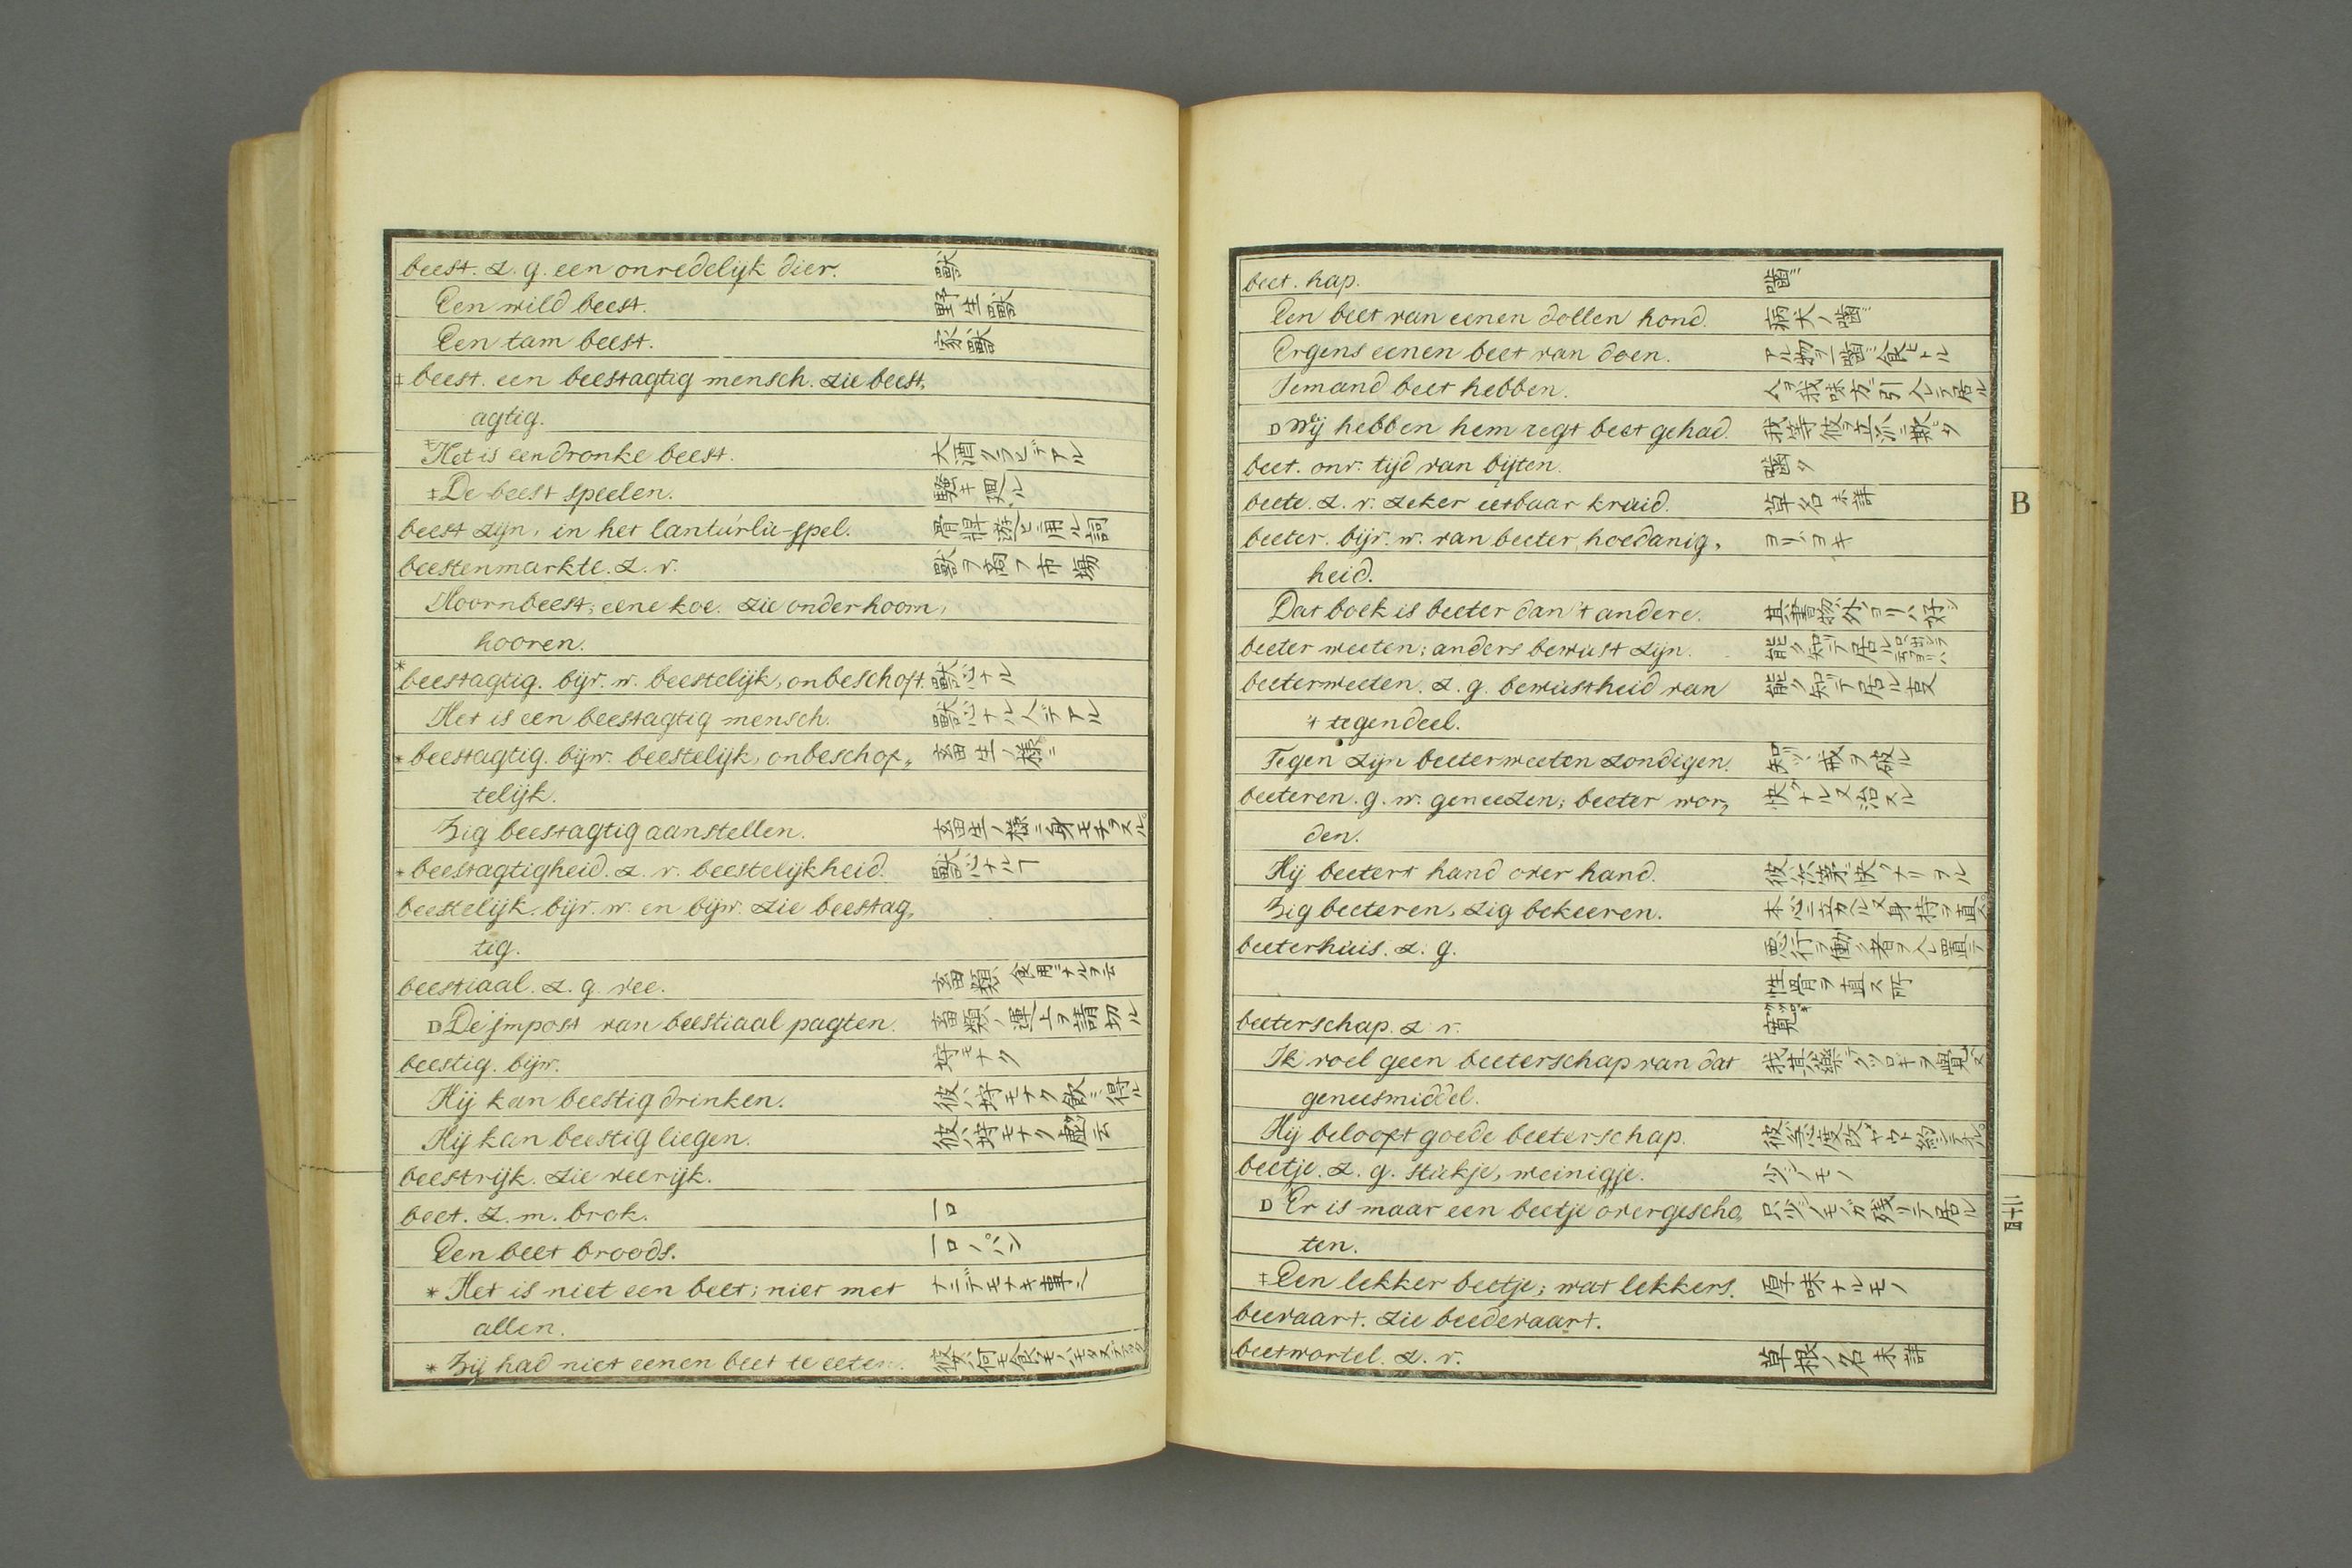 beest. z. g. een onredelijk dier. 獣
Een wild beest. 野生獣
Een tam beest. 家獣
‡ beest. een beestagtig mensch. zie beest,
agtig.
‡ Het is een dronke beest. 大酒クラヒデアル
‡ De beest speelen. 騒キ廻ル
beest zijn, in het lanturlu-spel. 骨牌遊ヒニ用ル詞
beestenmarkte. z. v. 獣ヲ商フ市場
Hoornbeest; eene koe. zie onder hoorn,
hooren.
* beestagtig. bijv. w. beestelijk, onbeschoft. 獣心ナル
Het is een beestagtig mensch. 獣心ナル人デアル
* beestagtig. bijw. beestelijk, onbeschof„ 畜生ノ様ニ
telijk.
Zig beestagtig aanstellen. 畜生ノ様ニ身モチヲスル
* beestagtigheid. z. v. beestelijkheid. 獣心ナルヿ
beestelijk. bijv. w. en bijw. zie beestag„
tig.
beestiaal. z. g. vee. 畜類 食用ニナルヲ云
D De impost van beestiaal pagten. 畜類ノ運上ヲ請切ル
beestig. bijw. 埒モナク
Hij kan beestig drinken. 彼ハ埒モナク飲ミ得ル
Hij kan beestig liegen. 彼ハ埒モナク虚ヲ云
beestrijk. zie veerijk.
beet. z. m. brok. 一口
Een beet broods. 一口ノパン
* Het is niet een beet; niet met ナニデモナキ事
allen.
* Zij had niet eenen beet te eeten. 彼女ハ何モ食モノハモタズ
beet. hap. 噛ミ
Een beet van eenen dollen hond. 病犬ノ噛ミ
Ergens eenen beet van doen. アル物ヲ一噛ミ食ヒトル
Iemand beet hebben. 人ヲ我味方ニ引入レテ居ル
D Wij hebben hem regt beet gehad. 我等彼ヲ立派ニ欺ヒタ
beet. onv. tijd van bijten. 噛タ
beete. z. v. zeker eetbaar kruid. 草名 未詳
beeter. bijv. w. van beeter hoedanig, ヨリヨキ
heid.
Dat boek is beeter dan 't andere. 其書物ハ外ノヨリハ好シ
beeter weeten; anders bewust zijn. 能ク知テ居ル
beeterweeten. z. g. bewustheid van 能ク知テ居ル叓
't tegendeel.
Tegen zijn beeterweeten zondigen. 知ツヽ戒ヲ破ル
beeteren. g. w. geneezen; beeter wor„ 快クナル又治スル
den.
Hij beetert hand over hand. 彼次第ニ快クナリヲル
Zig beeteren, zig bekeeren. 本心ニ立カヘル又身持ヲ直ス
beeterhuis. z. g. 悪行ヲ働ク者ヲ入レ置テ
性骨ヲ直ス所
beeterschap. z. v. 寛
Ik voel geen beeterschap van dat 我其藥デクツロキヲ覺ヘヌ
geneesmiddel.
Hij belooft goede beeterschap. 彼急度改ヤウト約シテヲル
beetje. z. g. stukje, weinigje. 少シノモノ
D Er is maar een beetje overgescho„ 只少シノモノガ残リテ居ル
ten.
‡ Een lekker beetje; wat lekkers. 厚味ナルモノ
beevaart. zie beedevaart.
beetwortel. z. v. 草根ノ名 未詳
B